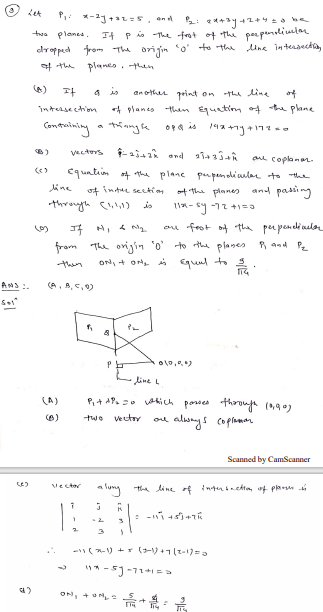 ③ Let P₁: x-2y+3z=5, and P₂: 2x+3y+z+4=0 be
two planes. If P is the foot of the perpendicular
dropped from the origin 'O' to the line intersection
of the planes, then
(A) If Q is another point on the line of
intersection of planes then Equation of the plane
Containing a triangle OPQ is 14x+7y+17z=0
(B) vectors î-2ĵ+3k̂ and 2î+3ĵ+k̂ are coplanar.
(C) Equation of the plane perpendicular to the
line of intersection of the planes and passing
through (1,1,1) is 11x-5y-7z+1=0
(D) If N₁ & N₂ are foot of the perpendicular
from the origin 'O' to the planes P₁ and P₂
then ON₁+ON₂ is equal to 9/√14.
Ans:- (A, B, C, D)
Solⁿ
P₁ Q P₂
P O(0,0,0)
line L
(A) P₁+λP₂=0 which passes through (0,0,0)
(B) two vector are always coplanar
Scanned by CamScanner
(C) vector along the line of intersection of planes is
| î ĵ k̂ |
| 1 -2 3 | = -11î+5ĵ+7k̂
| 2 3 1 |
∴ -11(x-1)+5(y-1)+7(z-1)=0
⇒ 11x-5y-7z+1=0
d) ON₁+ON₂ = 5/√14 + 4/√14 = 9/√14